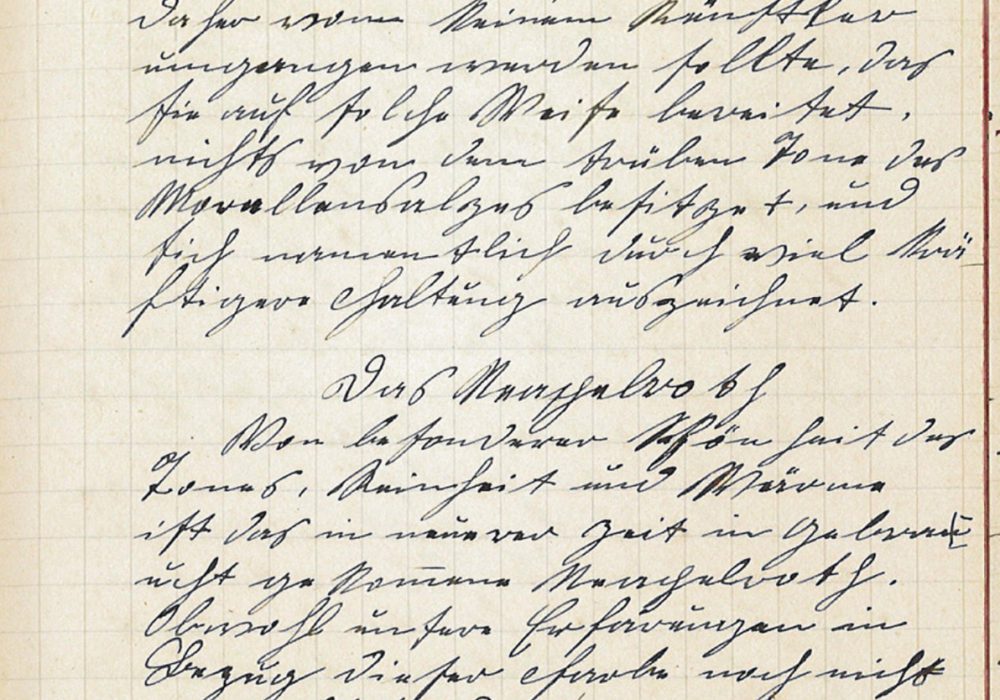 daher von keinem Künstker
umgangen werden sollte, das
sie auf solche Weise bereitet,
nichts von dem trüben Tone des
Morellensalzes besitzet, und
sich namentlich durch viel krä-
ftigere Haltung auszeichnet.
Das Neapelroth
Von besonderer Schönheit des
Tones, Reinheit und Wärme
ist das in neuerer Zeit in Gebrau
ucht gekom̅ene Neapelroth.
Obwohl unsere Erfarungen in
Bezug dieser Farbe noch nicht